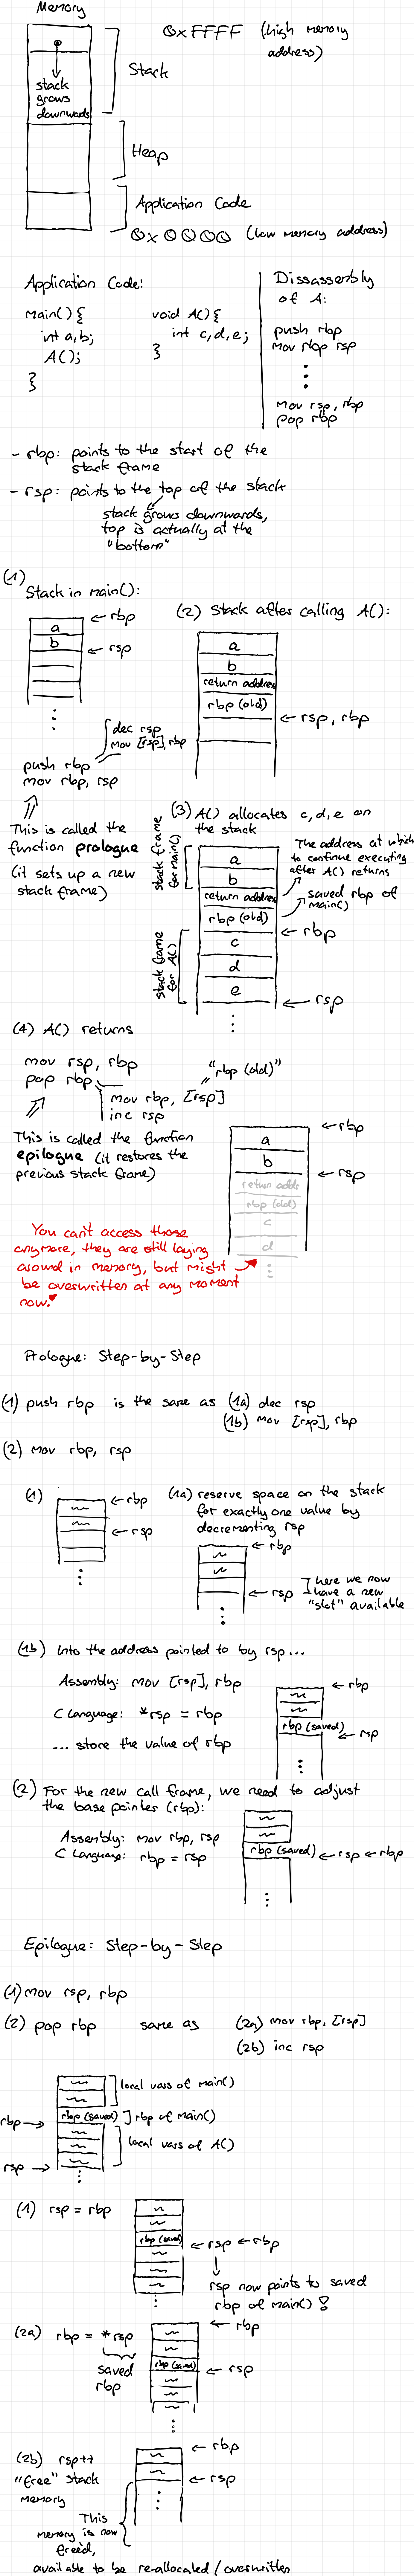 Memory
0xFFFF (high memory
address)
Stack
stack
grows
downwards
Heap
Application Code
0x0000 (low memory address)
Application Code:
main() {
int a,b;
A();
}
void A() {
int c,d,e;
}
Dissassembly
of A:
push rbp
mov rbp rsp
mov rsp, rbp
pop rbp
- rbp: points to the start of the
stack frame
- rsp: points to the top of the stack
stack grows downwards,
top is actually at the
"bottom"
(1)
Stack in main():
a
b
← rbp
← rsp
dec rsp
mov [rsp], rbp
push rbp
mov rbp, rsp
This is called the
function prologue
(it sets up a new
stack frame)
(2) Stack after calling A():
a
b
return address
rbp (old)
← rsp, rbp
(3) A() allocates c,d,e on
the stack
stack frame
for main()
stack frame
for A()
a
b
return address
rbp (old)
c
d
e
The address at which
to continue executing
after A() returns
saved rbp of
main()
← rbp
← rsp
(4) A() returns
mov rsp, rbp
pop rbp
"rbp (old)"
mov rbp, [rsp]
inc rsp
This is called the function
epilogue (it restores the
previous stack frame)
a
b
return addr
rbp (old)
c
d
← rbp
← rsp
You can't access those
anymore, they are still laying
around in memory, but might
be overwritten at any moment
now!
Prologue: Step-by-Step
(1) push rbp is the same as (1a) dec rsp
(1b) mov [rsp], rbp
(2) mov rbp, rsp
(1)
← rbp
← rsp
(1a) reserve space on the stack
for exactly one value by
decrementing rsp
← rbp
← rsp
here we now
have a new
"slot" available
(1b) Into the address pointed to by rsp...
Assembly: mov [rsp], rbp
C Language: *rsp = rbp
... store the value of rbp
← rbp
rbp (saved)
← rsp
(2) For the new call frame, we need to adjust
the base pointer (rbp):
Assembly: mov rbp, rsp
C Language: rbp = rsp
rbp (saved) ← rsp ← rbp
Epilogue: Step-by-Step
(1) mov rsp, rbp
(2) pop rbp same as (2a) mov rbp, [rsp]
(2b) inc rsp
local vars of main()
rbp → rbp (saved) rbp of main()
local vars of A()
rsp →
(1) rsp = rbp
rbp (saved)
← rsp ← rbp
rsp now points to saved
rbp of main()!
(2a) rbp = *rsp
saved
rbp
← rbp
rbp (saved)
← rsp
(2b) rsp++
"free" stack
memory
← rbp
← rsp
This
memory is now
freed,
available to be re-allocated / overwritten